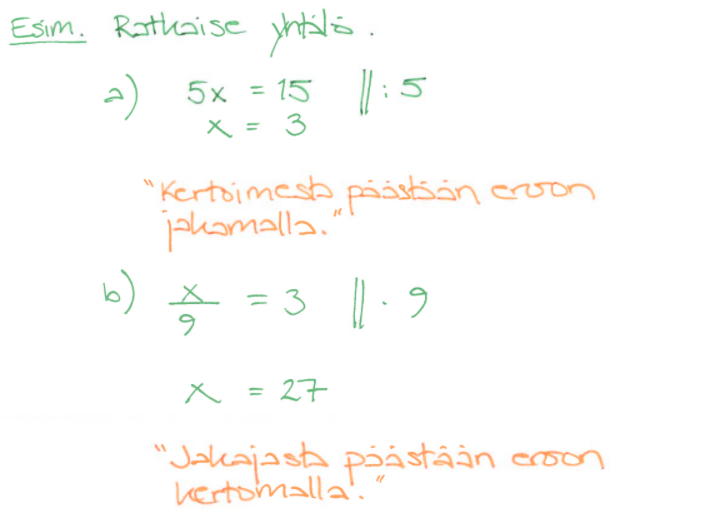 Esim. Ratkaise yhtälö.
a) 5x = 15 || : 5
x = 3
"Kertoimesta päästään eroon
jakamalla."
b) x/9 = 3 || · 9
x = 27
"Jakajasta päästään eroon
kertomalla."